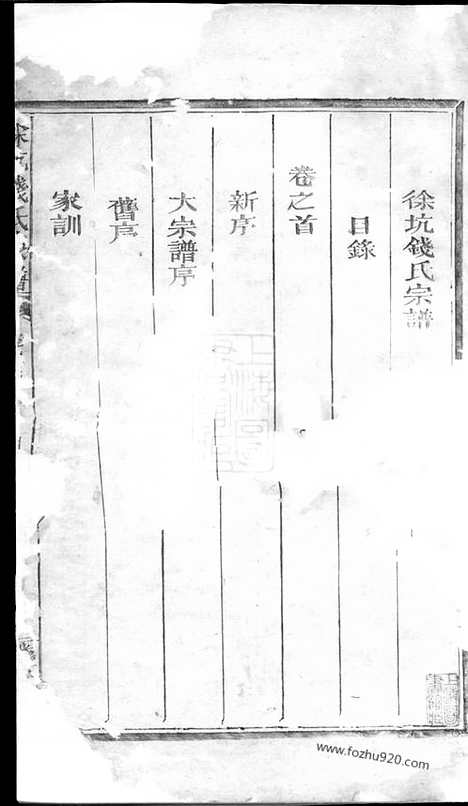 徐坑錢氏宗譜
目錄
卷之首
新序
大宗譜序
舊序
家訓
www.fozhu920.com